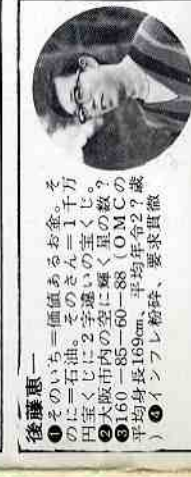 後藤恵一
❶そのいち=価値あるお金。そ
のに=石油。そのさん=1千万
円宝くじに2字違いの宝くじ。
❷大阪市内の空に輝く星の数?
❸160-85-60-88(OMCの
平均身長169cm、平均年令2?歳
)❹インフレ粉砕、要求貫徹